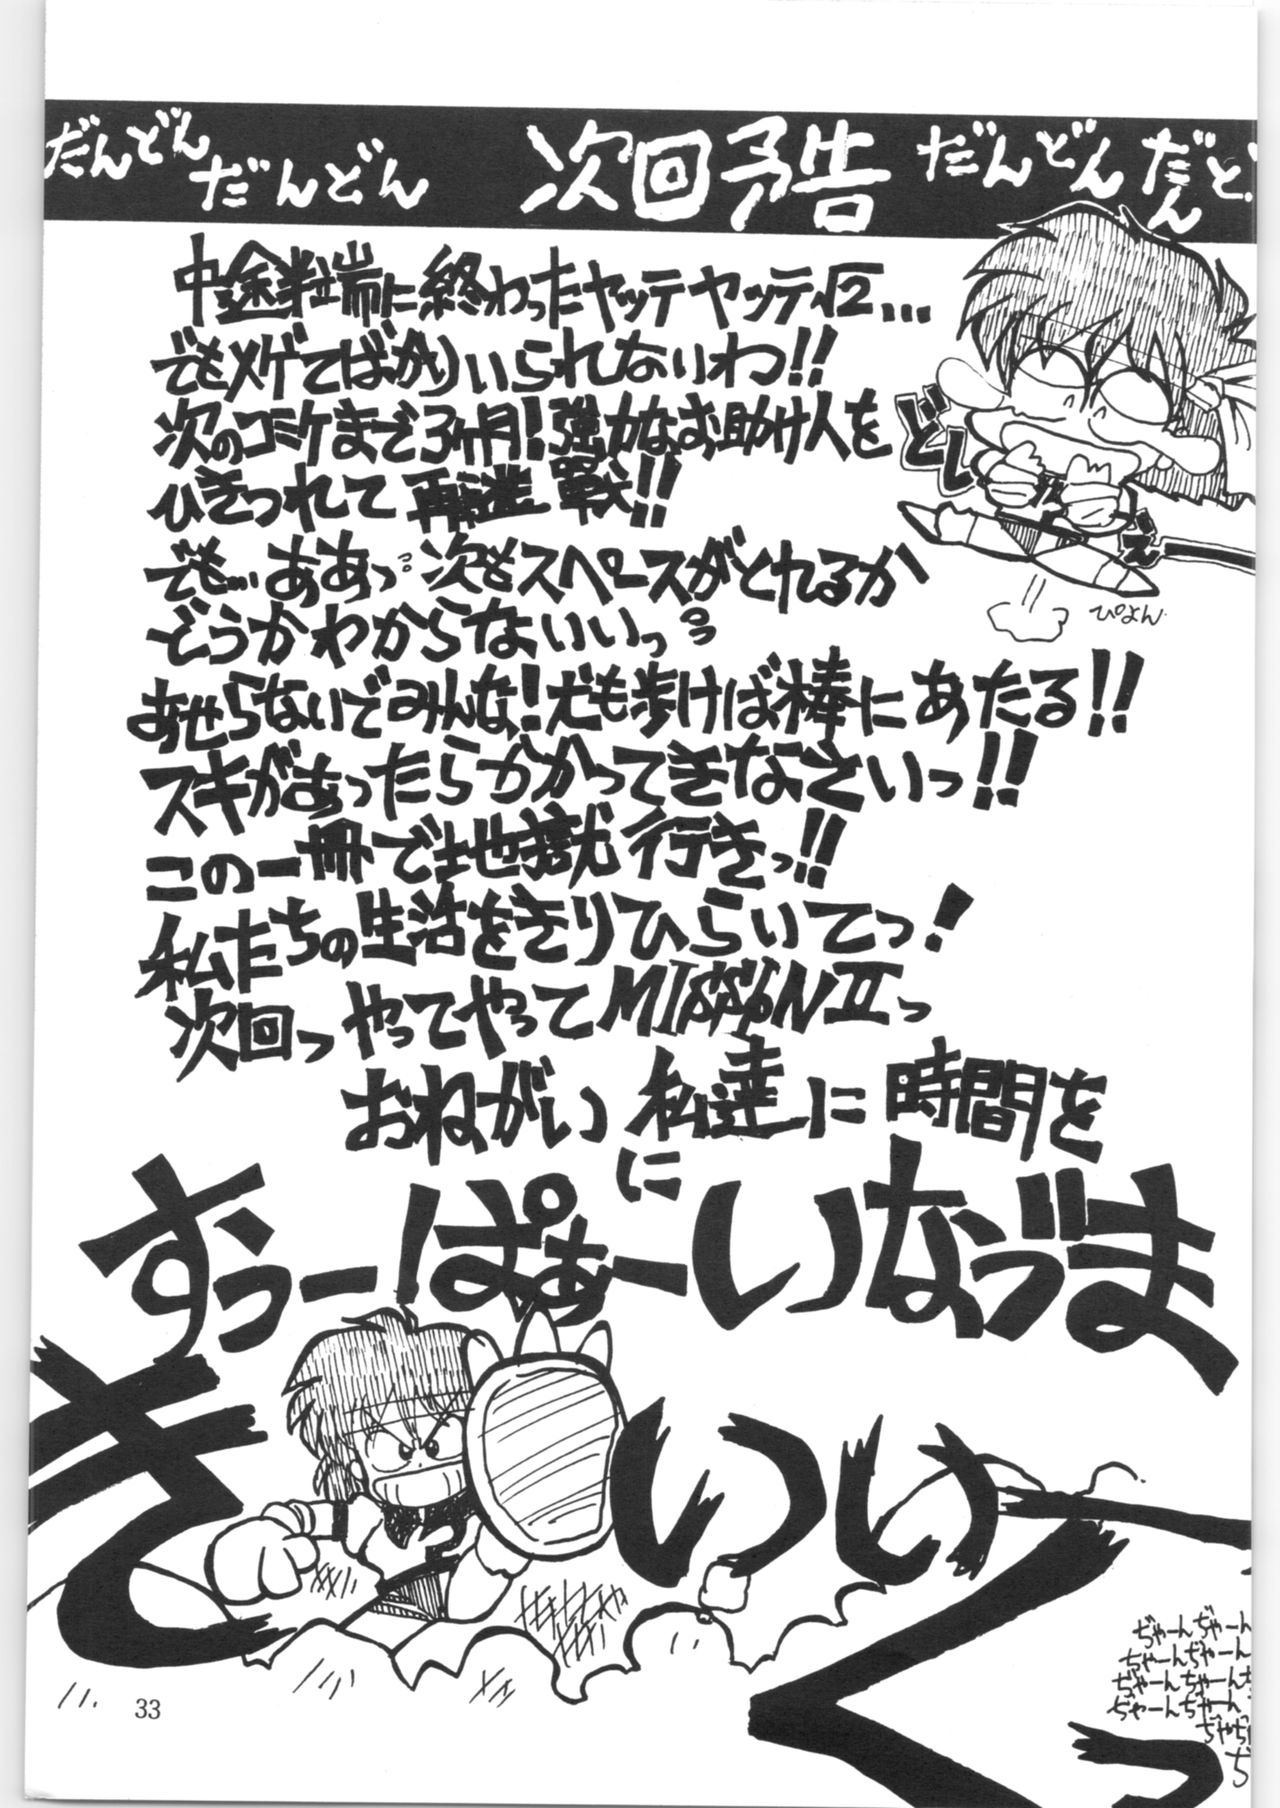 だんどん だんどん 次回予告 だんどん だん ど
中途半端に終わったヤッテヤッテ√2...
でもメゲてばかりいられないわ!!
次のコミケまで3ヶ月!強力なお助け人を
ひきつれて 再進撃!!
でも...ああっ 次もスペースがとれるか
どうかわからないいっ
あせらないでみんな!犬も歩けば棒にあたる!!
スキがあったらかかってきなさいっ!!
この一冊で地獄行きっ!!
私たちの生活をきりひらいてっ!
次回っ やってやってMISSION IIっ
おねがい 私達に 時間を
に
すっーぱぁーいなづま
きいいくっ
どしゅ
ぴょん
ぢゃーんぢゃーん
ぢゃーんぢゃーん
ぢゃーんぢゃーん
ぢゃーんぢゃーん
ぢゃぢ
ぢ
33